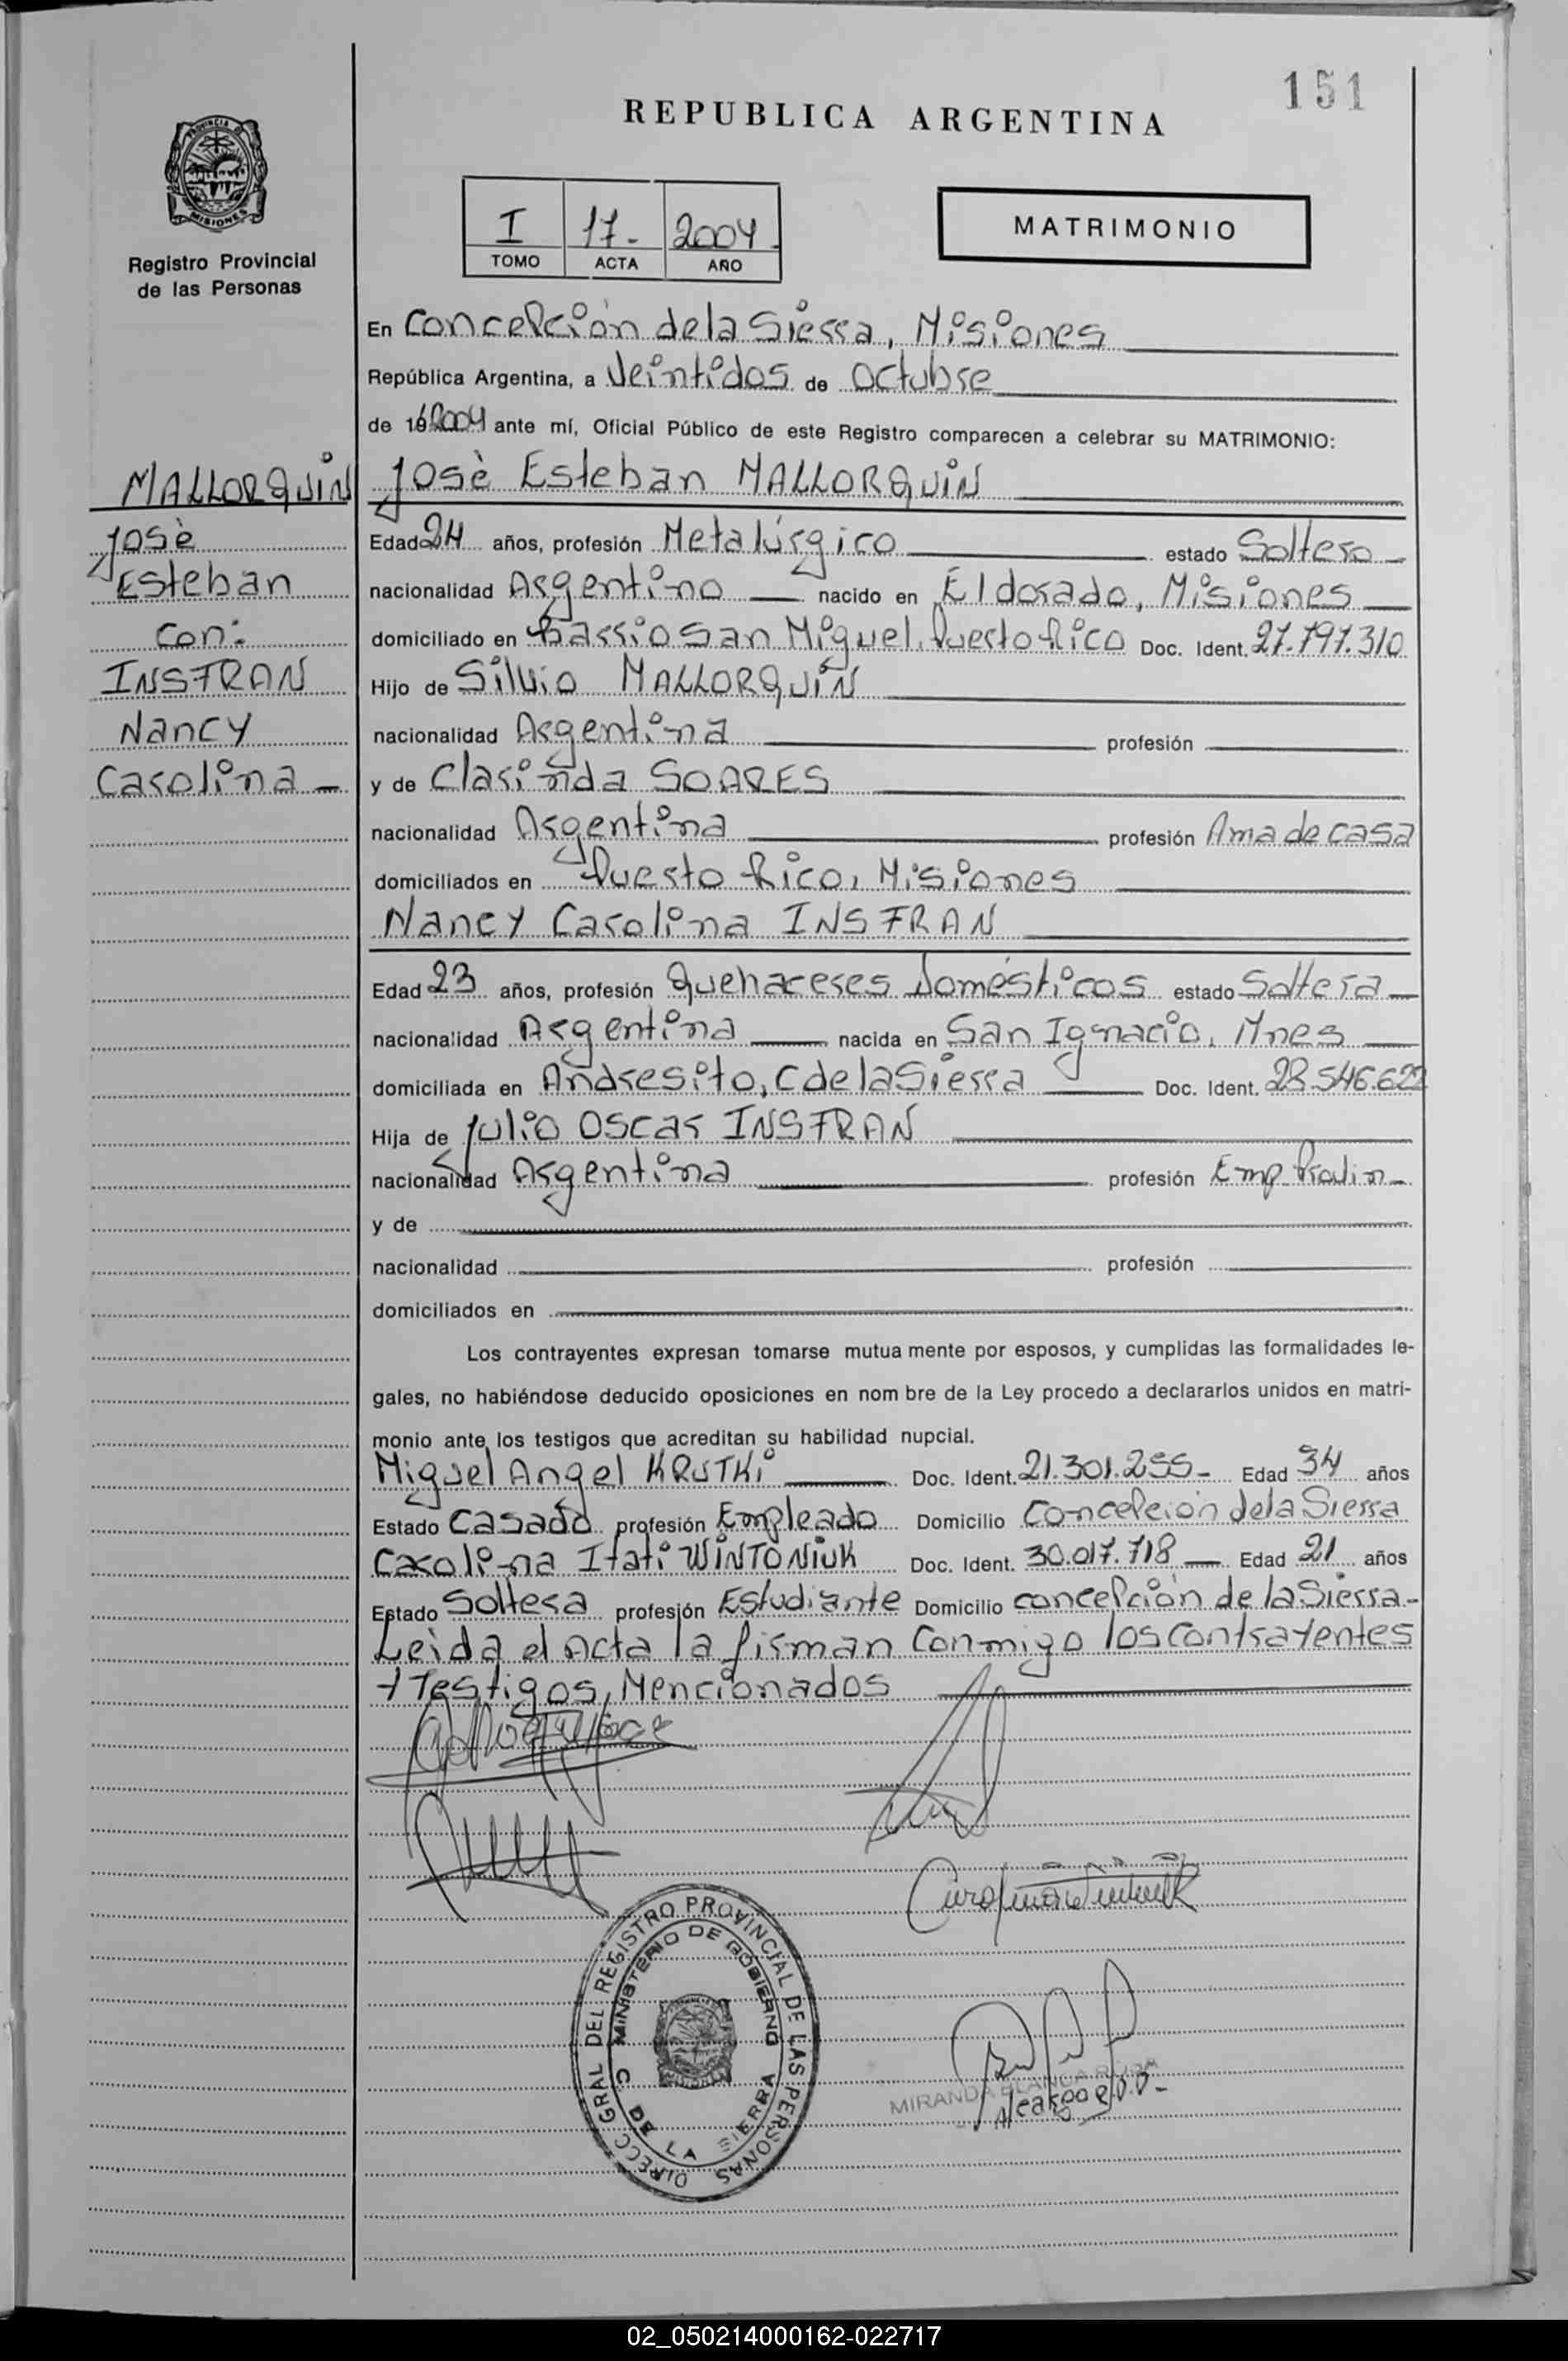 151
REPUBLICA ARGENTINA
PROVINCIA DE
MISIONES
Registro Provincial
de las Personas
I 17- 2004-
TOMO ACTA AÑO
MATRIMONIO
En Concepción de la Sierra, Misiones
República Argentina, a Veintidos de Octubre
de 19 2004 ante mí, Oficial Público de este Registro comparecen a celebrar su MATRIMONIO:
MALLORQUIN
José
Esteban
con:
INSFRAN
Nancy
Carolina -
José Esteban MALLORQUIN
Edad 24 años, profesión Metalúrgico estado Soltero
nacionalidad Argentino nacido en Eldorado, Misiones
domiciliado en Barrio San Miguel, Puerto Rico Doc. Ident. 27.797.310
Hijo de Silvio MALLORQUIN
nacionalidad Argentina profesión
y de Clarinda SOARES
nacionalidad Argentina profesión Ama de casa
domiciliados en Puerto Rico, Misiones
Nancy Carolina INSFRAN
Edad 23 años, profesión Quehaceres Domésticos estado Soltera
nacionalidad Argentina nacida en San Ignacio, Mnes
domiciliada en Andresito, C de la Sierra Doc. Ident. 28.546.622
Hija de Julio Oscar INSFRAN
nacionalidad Argentina profesión Emp. Provin.
y de
nacionalidad profesión
domiciliados en
Los contrayentes expresan tomarse mutua mente por esposos, y cumplidas las formalidades le-
gales, no habiéndose deducido oposiciones en nom bre de la Ley procedo a declararlos unidos en matri-
monio ante los testigos que acreditan su habilidad nupcial.
Miguel Angel KRUTKi Doc. Ident. 21.301.255- Edad 34 años
Estado Casado profesión Empleado Domicilio Concepción de la Sierra
Carolina Itatí WiNTONiUK Doc. Ident. 30.017.718 Edad 21 años
Estado Soltera profesión Estudiante Domicilio concepción de la Sierra-
Leída el Acta la firman conmigo los contrayentes
y Testigos Mencionados
DIRECC GRAL DEL REGISTRO PROVINCIAL DE LAS PERSONAS
MINISTERIO DE GOBIERNO
C. DE LA SIERRA
MIRANDA BLANCA ROSA
A/cargo R.P.P-
02_050214000162-022717